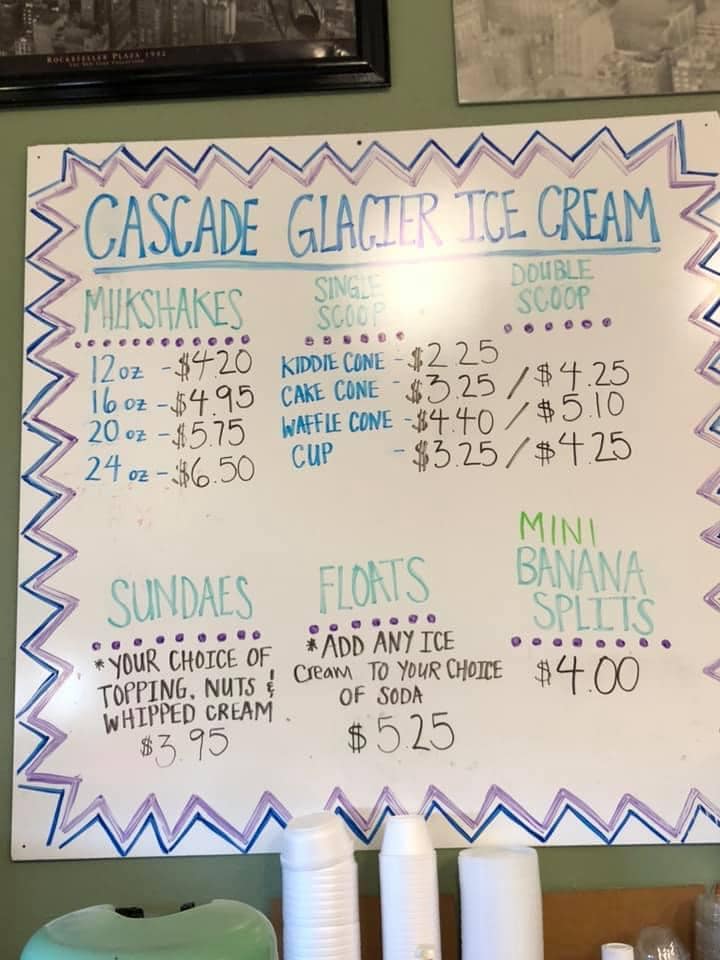 ROCKEFELLER PLAZA 1992
CASCADE GLACIER ICE CREAM
MILKSHAKES
12 oz - $4.20
16 oz - $4.95
20 oz - $5.75
24 oz - $6.50
SINGLE
SCOOP
DOUBLE
SCOOP
KIDDIE CONE - $2.25
CAKE CONE - $3.25 / $4.25
WAFFLE CONE - $4.40 / $5.10
CUP - $3.25 / $4.25
SUNDAES
* YOUR CHOICE OF
TOPPING, NUTS &
WHIPPED CREAM.
$3.95
FLOATS
* ADD ANY ICE
Cream TO YOUR CHOICE
OF SODA
$5.25
MINI
BANANA
SPLITS
$4.00